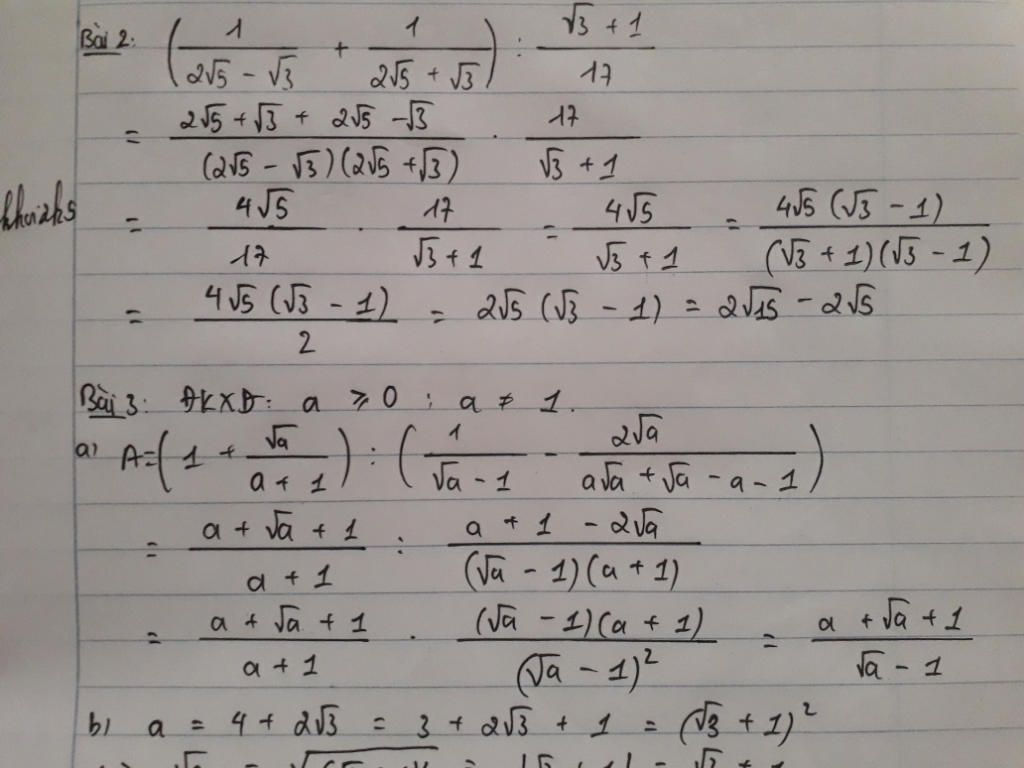 Bài 2: (1/(2√5 - √3) + 1/(2√5 + √3)) : (√3 + 1)/17
= (2√5 + √3 + 2√5 - √3)/((2√5 - √3)(2√5 + √3)) . 17/(√3 + 1)
khoi2k5
= 4√5/17 . 17/(√3 + 1) = 4√5/(√3 + 1) = 4√5 (√3 - 1)/((√3 + 1)(√3 - 1))
= 4√5 (√3 - 1)/2 = 2√5 (√3 - 1) = 2√15 - 2√5
Bài 3: ĐKXĐ: a ≥ 0 ; a ≠ 1.
a) A = (1 + √a/(a + 1)) : (1/(√a - 1) - 2√a/(a√a + √a - a - 1))
= (a + √a + 1)/(a + 1) : (a + 1 - 2√a)/((√a - 1)(a + 1))
= (a + √a + 1)/(a + 1) . (√a - 1)(a + 1)/(√a - 1)² = (a + √a + 1)/(√a - 1)
b) a = 4 + 2√3 = 3 + 2√3 + 1 = (√3 + 1)²